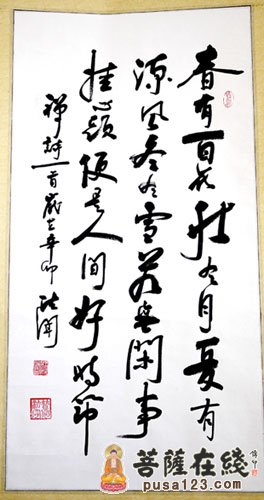 春有百花秋有月夏有
涼風冬有雪若無閑事
挂心頭便是人間好時節
禪詩一首歲在辛卯
菩薩在綫
pusa123.com